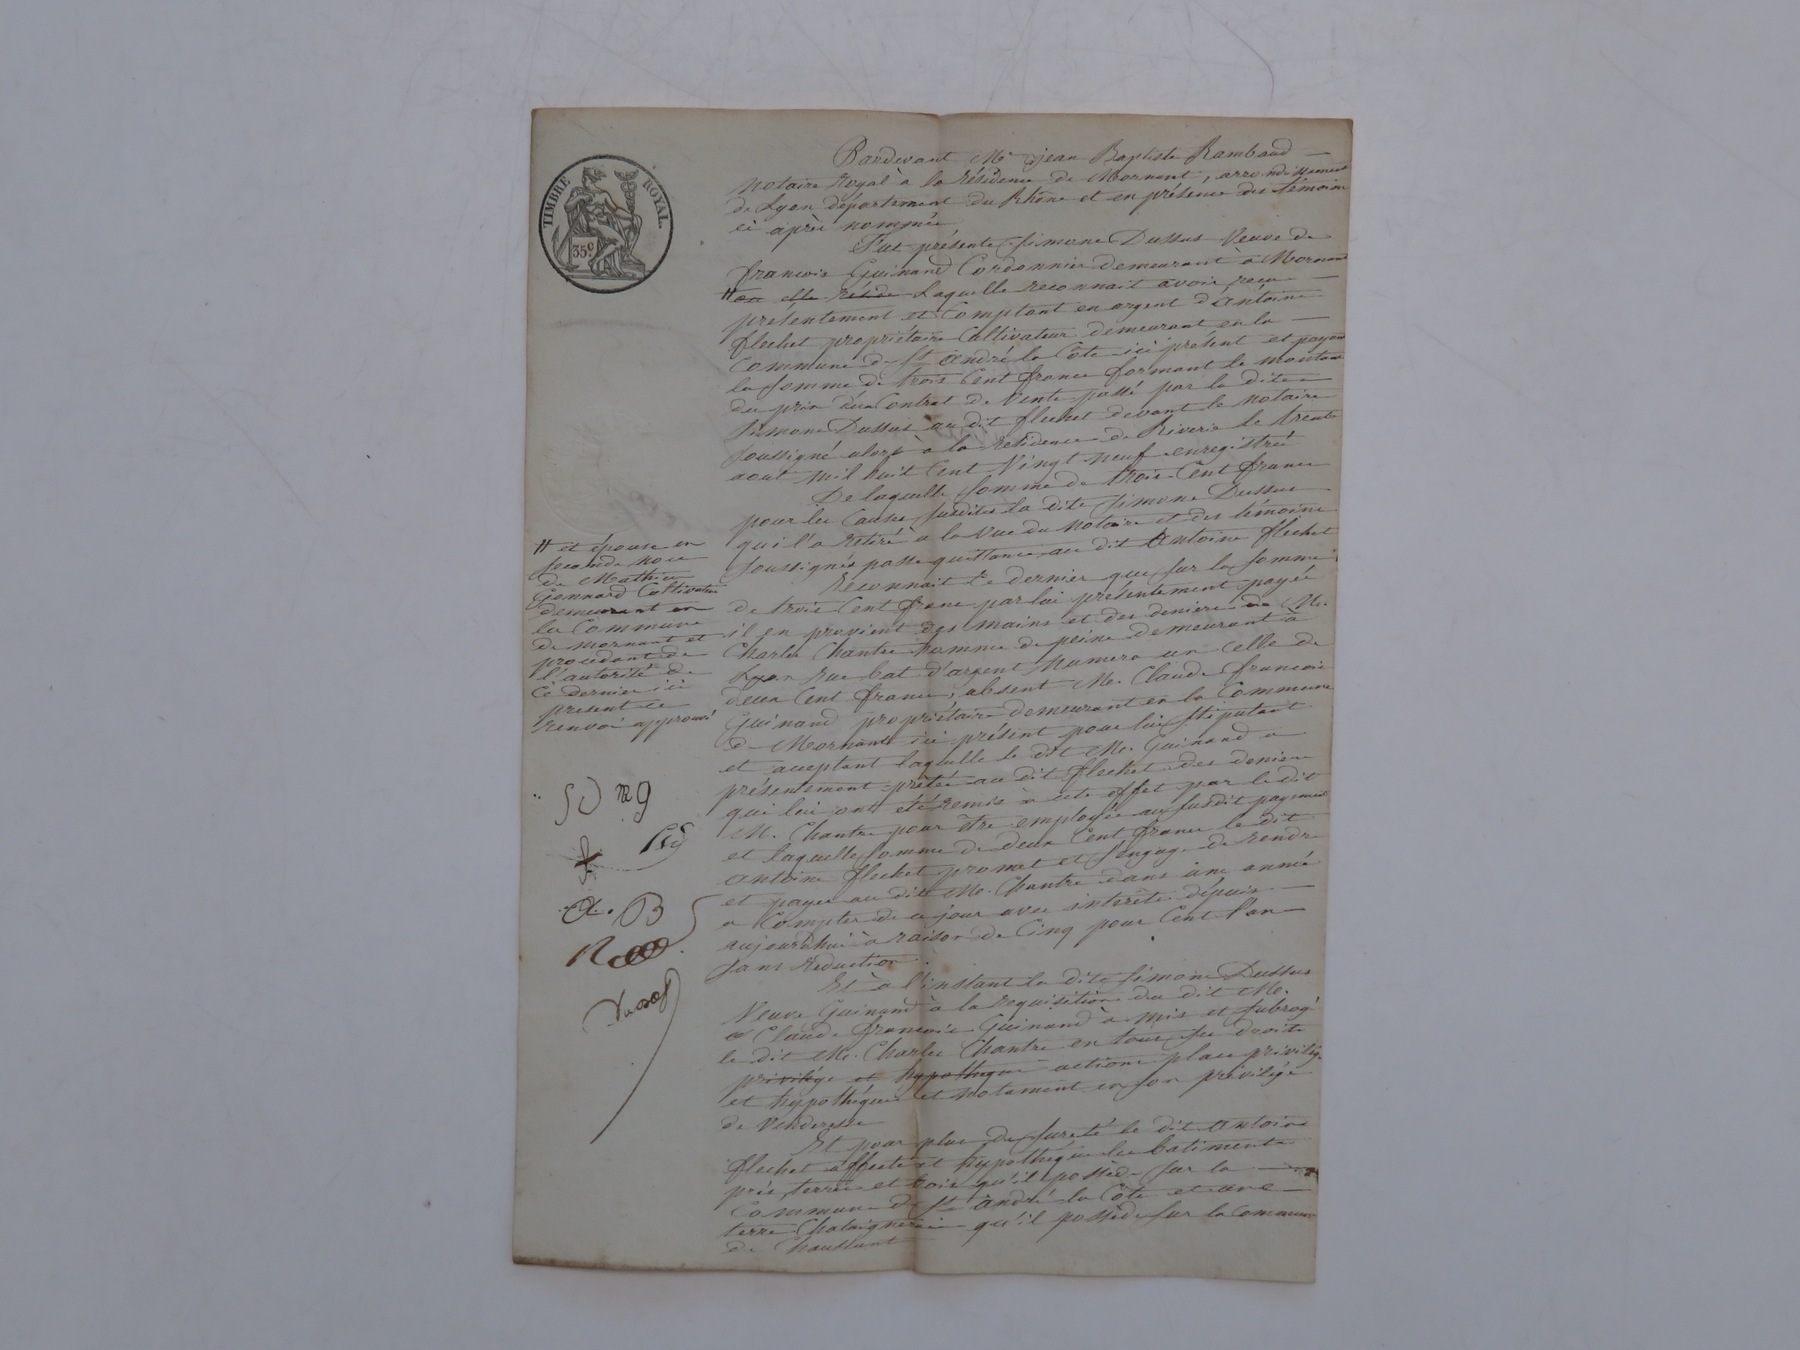 TIMBRE ROYAL
35 c.
Pardevant Me jean Baptiste Rambaud
notaire royal à la résidence de Mornant, arrondissement
de Lyon département du Rhône et en présence des témoins
ci après nommés
Fut présente Simone Dussus Veuve de
francois Guinand Cordonnier demeurant à Mornant
# ou elle réside Laquelle reconnait avoir reçu
présentement et Comptant en argent d'antoine
flechet propriétaire Cultivateur demeurant en la
Commune de St andré la Côte ici présent et payant
la somme de trois Cent francs formant le montant
du prix d'un Contrat de Vente passé par la dite
Simone Dussus au dit flechet devant le notaire
soussigné alors à la résidence de Riverie le trente
aout mil huit Cent Vingt neuf enregistré
De laquelle somme de trois Cent francs
pour les Causes susdites la dite Simone Dussus
qui l'a retiré à la vue du notaire et des témoins
soussignés passe quittance au dit Antoine flechet
Reconnait ce dernier que sur la somme
de trois Cent francs par lui présentement payée
il en provient des mains et des deniers de M.
Charles Chantre homme de peine demeurant à
Lyon rue bat d'argent numero un celle de
deux Cent francs, absent M. Claude francois
Guinand propriétaire demeurant en la Commune
de Mornant ici présent pour lui stipulant
et acceptant laquelle le dit M. Guinand a
présentement prêtée au dit flechet des deniers
qui lui ont été remis à cet effet par le dit
M. Chantre pour être employée au susdit payement
et laquelle somme de deux Cent francs le dit
antoine flechet promet et s'engage de rendre
et payer au dit M. Chantre dans une année
a Compter de ce jour avec intérêts dépuis
aujourdhui à raison de Cinq pour Cent l'an
sans réduction.
Et à l'instant la dite Simone Dussus
Veuve Guinand à la requisition du dit M.
Claude francois Guinand à mis et subrogé
le dit M. Charles Chantre en tous ses droits
privilége et hypothèque actions place privilége
et hypothéques et notament en son privilége
de Venderesse
Et pour plus de sureté le dit antoine
flechet affecte et hypothéque les batiments
prés, terres et bois qu'il possède sur la
Commune de St andré la Côte et une
terre Chataigneraie qu'il possède sur la Commune
de Chaussant
# et épouse en
seconde noce
de Mathieu
Gonnard Cultivateur
demeurant en
la Commune
de mornant et
procédant de
l'autorité de
Ce dernier ici
present ce
renvoi approuvé
SD mg